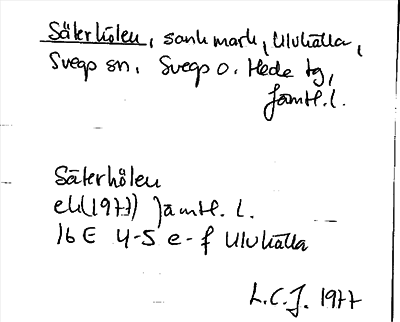 Säterhölen, sank mark, Ulvkälla,
Svegs sn, Svegs o. Hede tg,
Jämtl. l.
Säterhölen
ek(1977) Jämtl. l.
16 E 4-5 e-f Ulvkälla
L.C.J. 1977